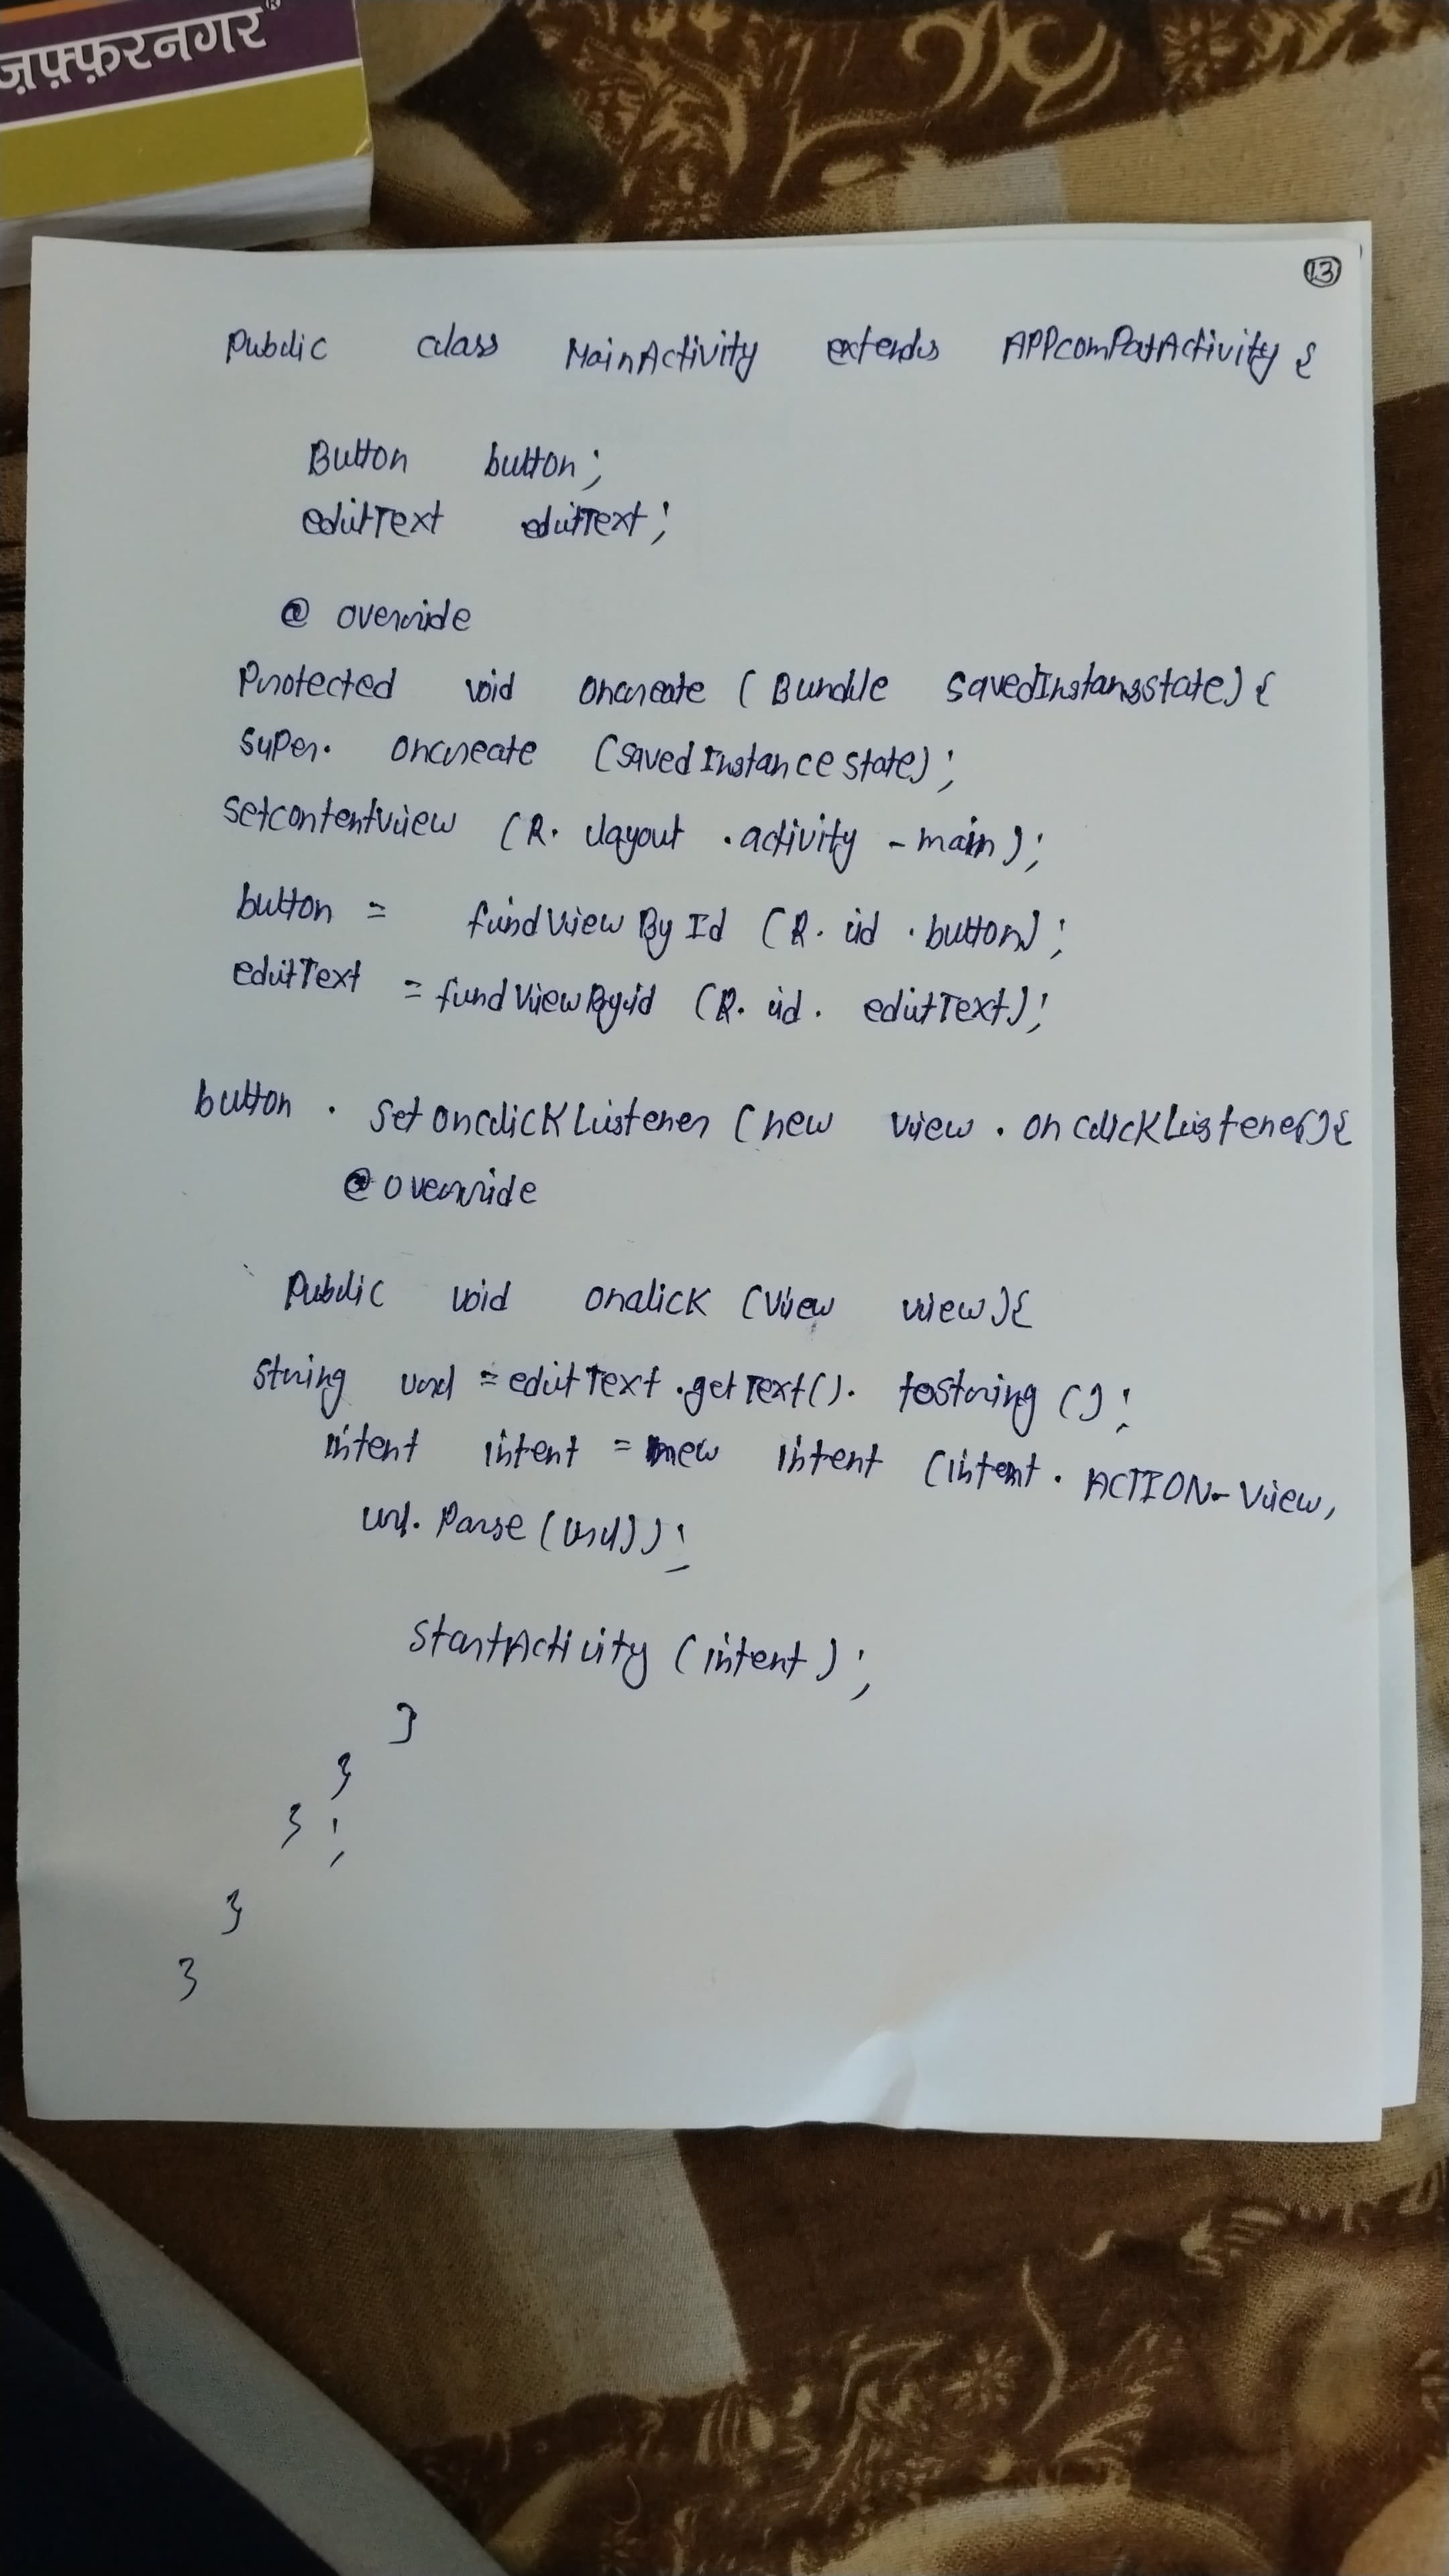 ज़फ़्फ़रनगर®
13
Public class MainActivity extends APPcomPatActivity {
Button button;
editText editText;
@ override
Protected void oncreate (Bundle savedInstansstate) {
super. oncreate (savedInstance state);
setcontentview (R. layout .activity - main);
button = findViewById (R. id . button);
editText = findViewByid (R. id. editText);
button . setonclickListener (new view . onclickListener(){
@override
Public void onclick (View view){
string url = editText.getText(). tostring ();
intent intent = new intent (intent. ACTION-View,
url. Parse (url));
startActivity (intent);
}
}
} ;
}
}